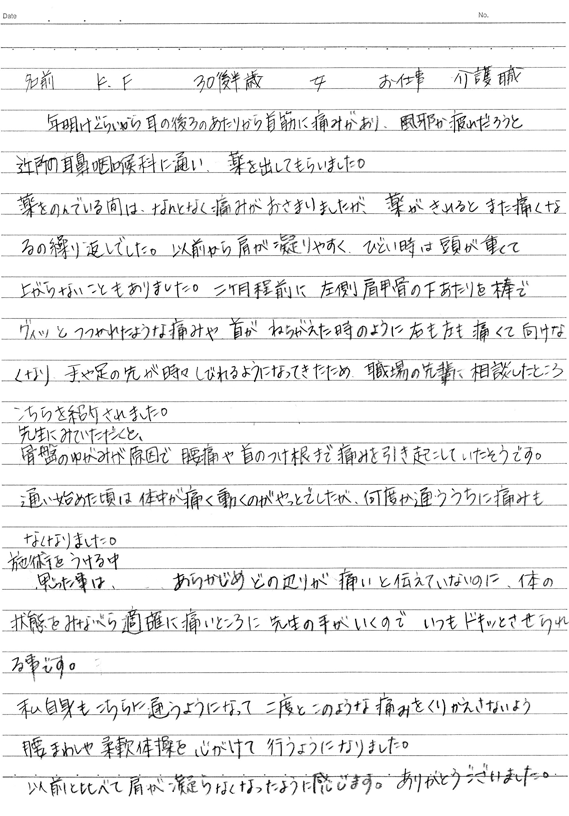 Date
No.
名前 K.F 30後半歳 女 お仕事 介護職
年明けぐらいから耳の後ろのあたりから首筋に痛みがあり、風邪か疲れだろうと
近所の耳鼻咽喉科に通い、薬を出してもらいました。
薬をのんでいる間は、なんとなく痛みがおさまりましたが、薬がきれるとまた痛くな
るの繰り返しでした。以前から肩が凝りやすく、ひどい時は頭が重くて
上がらないこともありました。二ヶ月程前に左側肩甲骨の下あたりを棒で
ヴィッとつつかれたような痛みや首がねちがえた時のように右も左も痛くて向けな
くなり手や足の先が時々しびれるようになってきたため、職場の先輩に相談したところ
こちらを紹介されました。
先生にみていただくと、
骨盤のゆがみが原因で腰痛や首のつけ根まで痛みを引き起こしていたそうです。
通い始めた頃は体中が痛く動くのがやっとでしたが、何度か通ううちに痛みも
なくなりました。
施術をうける中
思った事は、あらかじめどの辺りが痛いと伝えていないのに、体の
状態をみながら適確に痛いところに先生の手がいくのでいつもドキッとさせられ
る事です。
私自身もこちらに通うようになって二度とこのような痛みをくりかえさないよう
腰まわしや柔軟体操を心がけて行うようになりました。
以前と比べて肩が凝らなくなったように感じます。ありがとうございました。